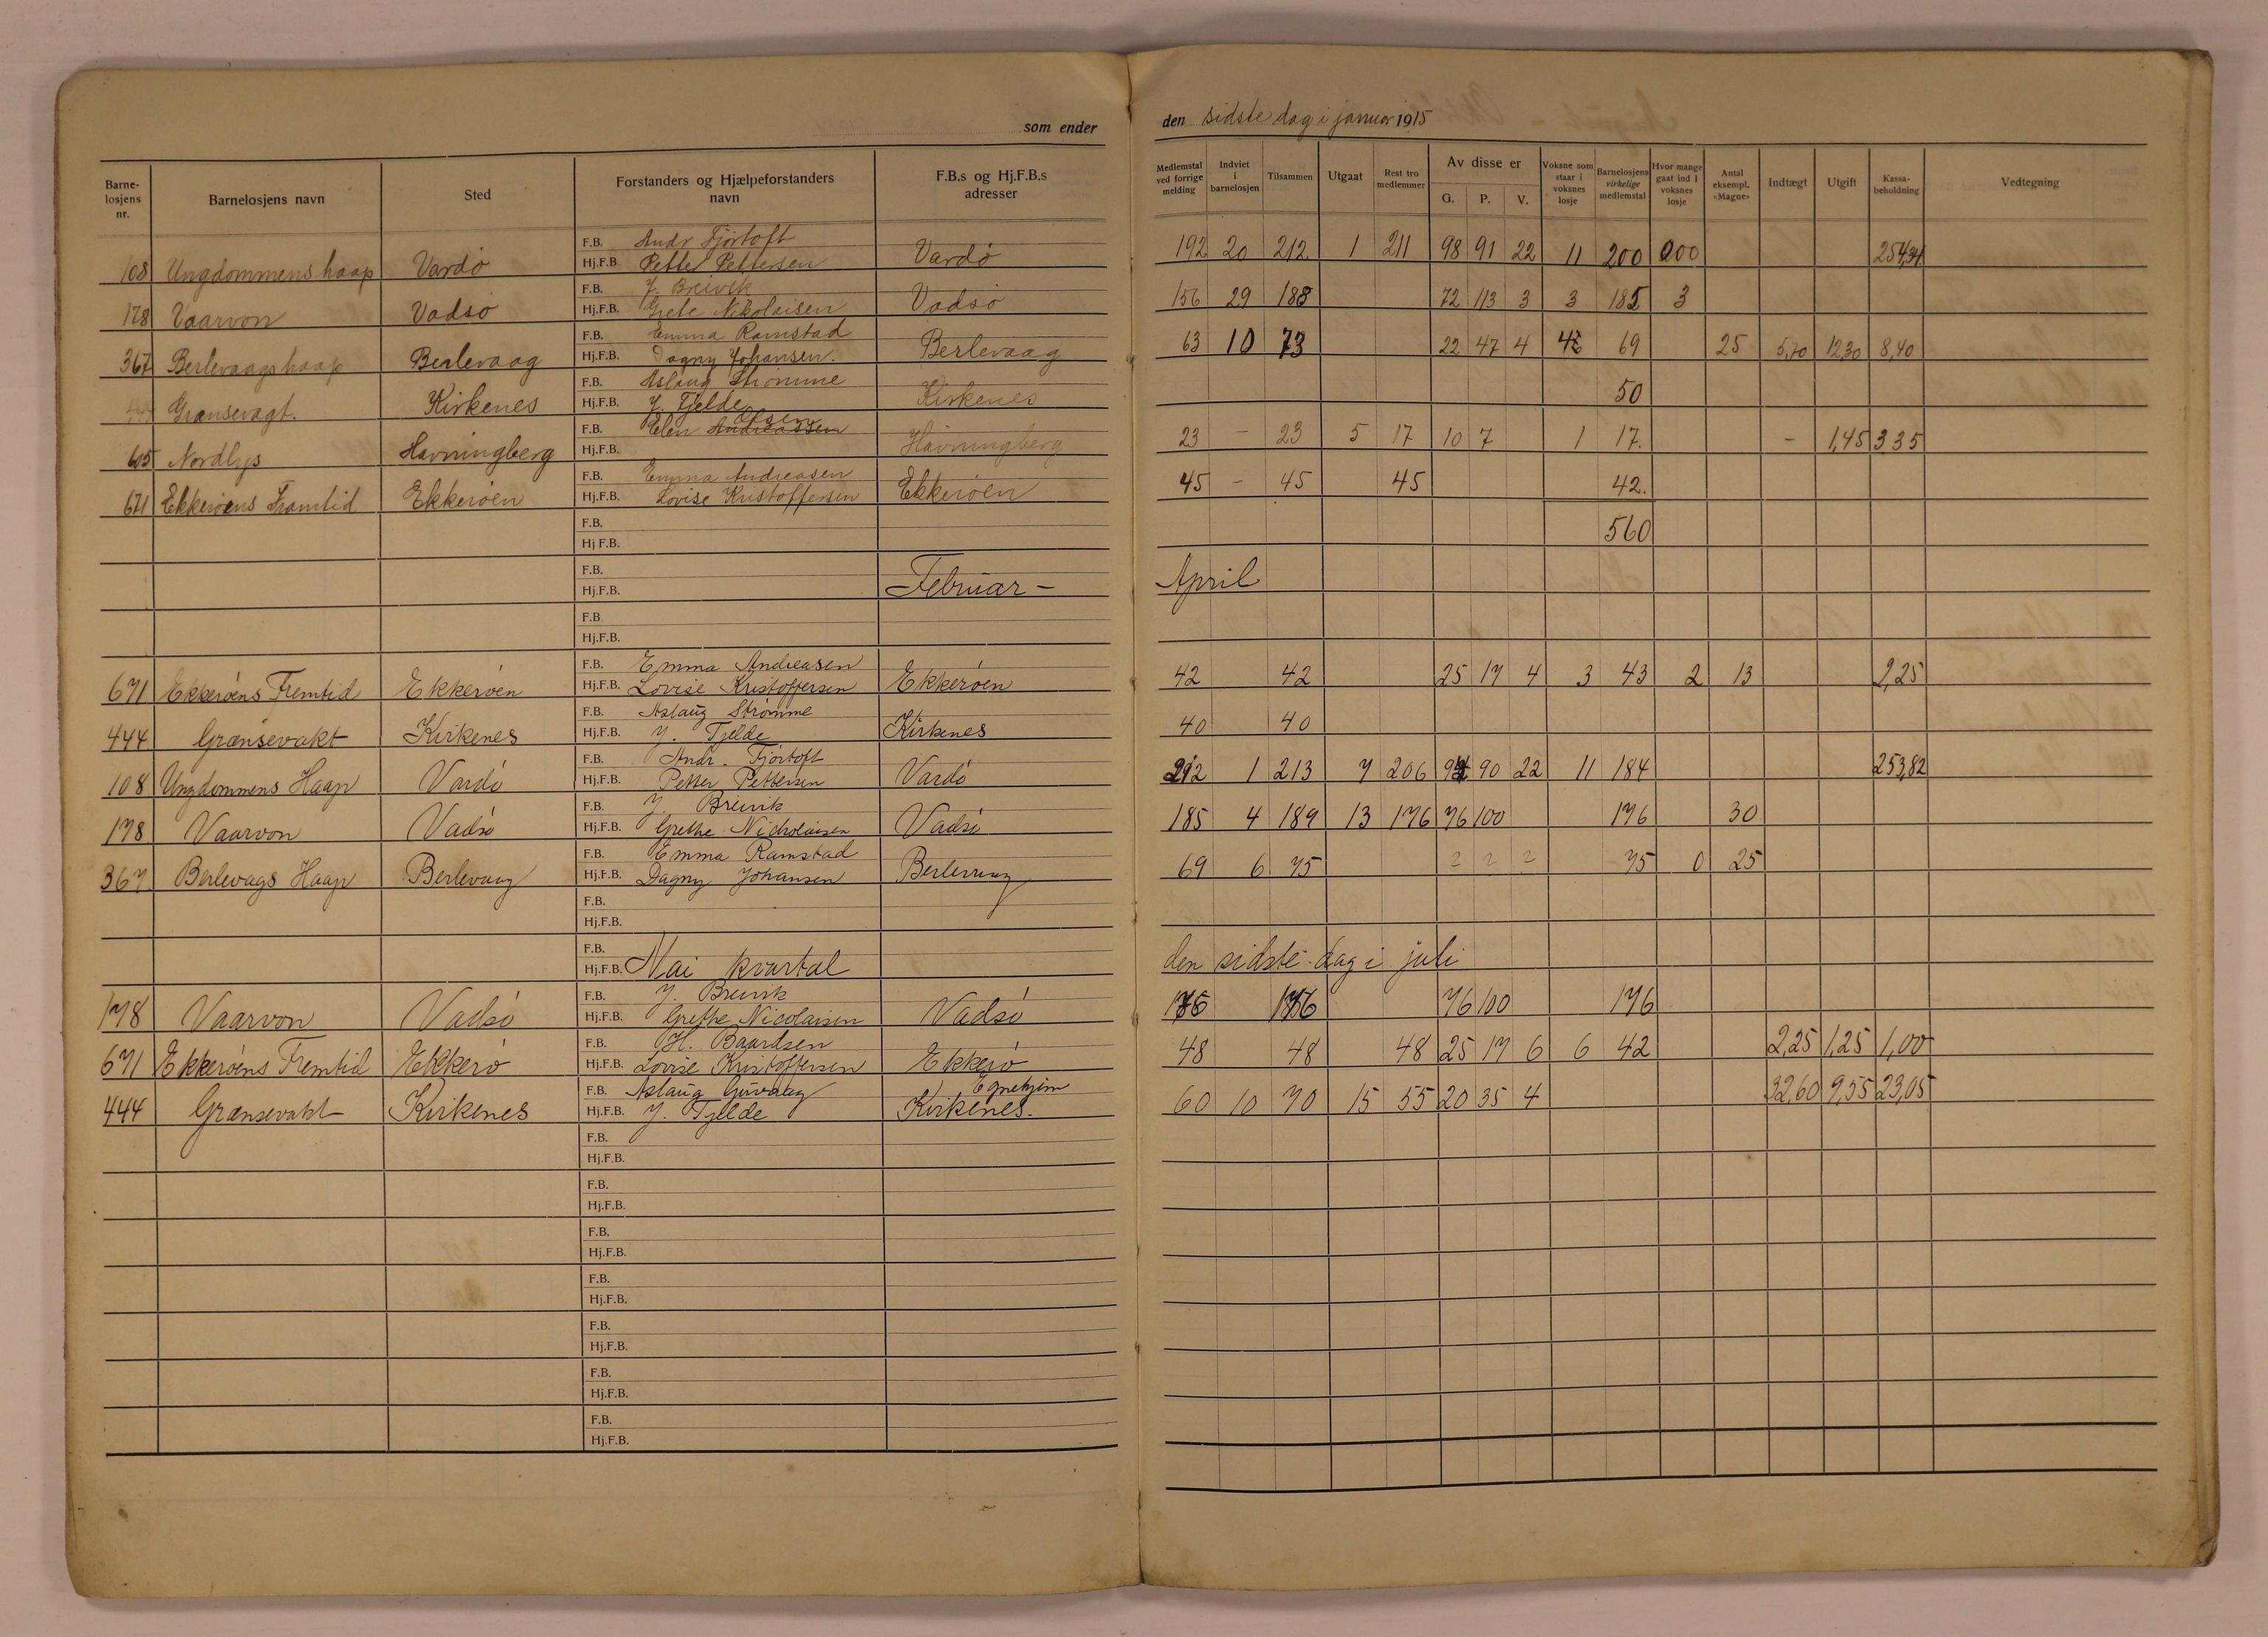 som ender
Barnelosjens nr. Barnelosjens navn Sted Forstanders og Hjælpeforstanders navn F.B.s og Hj.F.B.s adresser
F.B. Andr Fjørtoft
108 Ungdommens haap Vardø Hj.F.B. Petter Pettersen Vardø
F.B. J. Breivik
178 Vaarvon Vadsø Hj.F.B. Grete Nikolaisen Vadsø
F.B. Emma Ramstad
367 Berlevaags haap Berlevaag Hj.F.B. Dagny Johansen. Berlevaag
F.B. Aslaug Strømme
Grænsevagt. Kirkenes Hj.F.B. J. Tjelde Kirkenes
F.B. Elen Andreassen Olsen
605 Nordlys Havningberg Hj.F.B. Havningberg
F.B. Emma Andreasen
671 Ekkerøens Framtid Ekkerøen Hj.F.B. Lovise Kristoffersen Ekkerøen
F.B.
Hj F.B.
F.B.
Hj.F.B. Februar -
F.B.
Hj.F.B.
F.B. Emma Andreasen
671 Ekkerøens Fremtid Ekkerøen Hj.F.B. Lovise Kristoffersen Ekkerøen
F.B. Aslaug Strømme
444 Grænsevakt Kirkenes Hj.F.B. J. Tjelde Kirkenes
F.B. Andr. Fjørtoft
108 Ungdommens Haap Vardø Hj.F.B. Petter Pettersen Vardø
F.B. J Breivik
178 Vaarvon Vadsø Hj.F.B. Grethe Nicholaisen Vadsø
F.B. Emma Ramstad
367 Berlevags Haap Berlevaag Hj.F.B. Dagny Johansen Berlevaag
F.B.
Hj.F.B.
F.B.
Hj.F.B. Mai kvartal
F.B. J. Breivik
178 Vaarvon Vadsø Hj.F.B. Grethe Nicolaisen Vadsø
F.B. H. Baardsen
671 Ekkerøens Fremtid Ekkerø Hj.F.B. Lovise Kristoffersen Ekkerø
F.B. Aslaug
444 Grænsevakt Kirkenes Hj.F.B. J. Tjelde Kirkenes.
F.B.
Hj.F.B.
F.B.
Hj.F.B.
F.B.
Hj.F.B.
F.B.
Hj.F.B.
F.B.
Hj.F.B.
F.B.
Hj.F.B.
F.B.
Hj.F.B.
den sidste dag i januar 1915
Medlemstal ved forrige melding Indviet i barnelosjen Tilsammen Utgaat Rest tro medlemmer Av disse er G. P. V. Voksne som staar i voksnes losje Barnelosjens virkelige medlemstal Hvor mange gaat ind i voksnes losje Antal eksempl. «Magne» Indtægt Utgift Kassabeholdning Vedtegning
192 20 212 1 211 98 91 22 11 200 000 254,34
156 29 188 72 113 3 3 185 3
63 10 73 22 47 4 69 25 5,70 12,30 8,40
50
23 - 23 5 17 10 7 1 17. - 1,45 3 35
45 - 45 45 42.
560
April
42 42 25 17 4 3 43 2 13 2,25
40 40
212 1 213 7 206 94 90 22 11 184 253,82
185 4 189 13 176 76 100 176 30
69 6 75 2 2 2 75 0 25
den sidste dag i juli
176 176 76 100 176
48 48 48 25 17 6 6 42 2,25 1,25 1,00
60 10 70 15 55 20 35 4 32,60 9,55 23,05